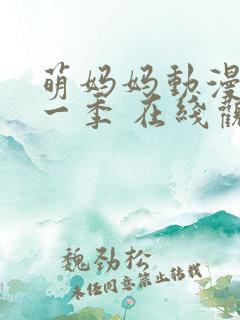 萌妈妈動漫
一季 在线觀
魏劲松
未经同意禁止转载